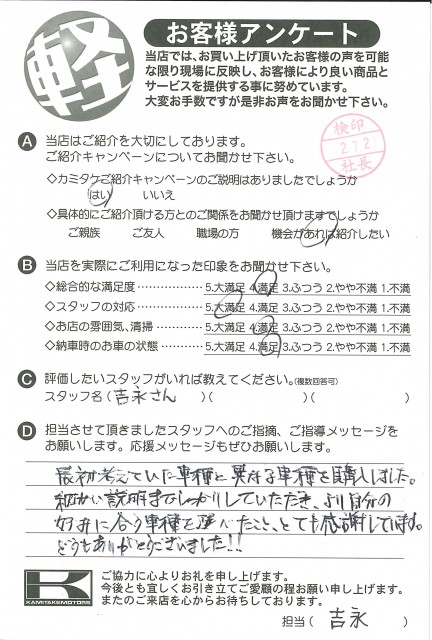 軽
お客様アンケート
当店では、お買い上げ頂いたお客様の声を可能
な限り現場に反映し、お客様により良い商品と
サービスを提供する事に努めています。
大変お手数ですが是非お声をお聞かせ下さい。
検印
社長
A 当店はご紹介を大切にしております。
ご紹介キャンペーンについてお聞かせ下さい。
◇カミタケご紹介キャンペーンのご説明はありましたでしょうか
はい いいえ
◇具体的にご紹介頂ける方とのご関係をお聞かせ頂けますでしょうか
ご親族 ご友人 職場の方 機会があれば紹介したい
B 当店を実際にご利用になった印象をお聞かせ下さい。
◇総合的な満足度 5.大満足 4.満足 3.ふつう 2.やや不満 1.不満
◇スタッフの対応 5.大満足 4.満足 3.ふつう 2.やや不満 1.不満
◇お店の雰囲気、清掃 5.大満足 4.満足 3.ふつう 2.やや不満 1.不満
◇納車時のお車の状態 5.大満足 4.満足 3.ふつう 2.やや不満 1.不満
C 評価したいスタッフがいれば教えてください。(複数回答可)
スタッフ名(吉永さん )( )( )
D 担当させて頂きましたスタッフへのご指摘、ご指導メッセージを
お願いします。応援メッセージもぜひお願いします。
最初考えていた車種と異なる車種を購入しました。
細かい説明までしっかりしていただき、より自分の
好みに合う車種を選べたこと、とても感謝しています。
どうもありがとうございました!!
K
KAMITAKEMOTORS
ご協力に心よりお礼を申し上げます。
今後とも宜しくお引き立てご愛顧の程お願い申し上げます。
またのご来店を心からお待ちしております。
担当( 吉永 )